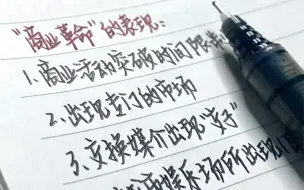 "商业革命"的表现:
1.商业活动突破时间限
2.出现专门的市场
3.交换媒介出现"交子"
娱乐场所出现